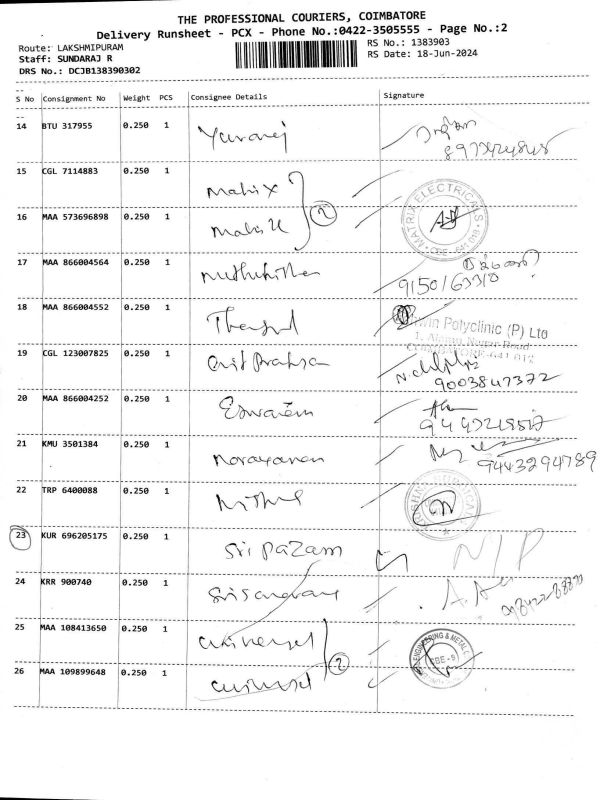 THE PROFESSIONAL COURIERS, COIMBATORE
Delivery Runsheet - PCX - Phone No.:0422-3505555 - Page No.:2
Route: LAKSHMIPURAM
RS No.: 1383903
Staff: SUNDARAJ R
RS Date: 18-Jun-2024
DRS No.: DCJB138390302
S No Consignment No Weight PCS Consignee Details Signature
14 BTU 317955 0.250 1 Yuvaraj
15 CGL 7114883 0.250 1 Matrix
MATRIX ELECTRICALS
CBE - 641 012
16 MAA 573696898 0.250 1 Matrix
2
17 MAA 866004564 0.250 1
9150163318
18 MAA 866004552 0.250 1
Polyclinic (P) Ltd
COIMBATORE-641 012
19 CGL 123007825 0.250 1
9003847372
20 MAA 866004252 0.250 1 Eswaran
21 KMU 3501384 0.250 1 Narayanan
9443294789
22 TRP 6400088 0.250 1
23 KUR 696205175 0.250 1 Sri Pazam N/P
24 KRR 900740 0.250 1
25 MAA 108413650 0.250 1 universal
ENGINEERING & METAL
CBE-9
2
26 MAA 109899648 0.250 1 universal